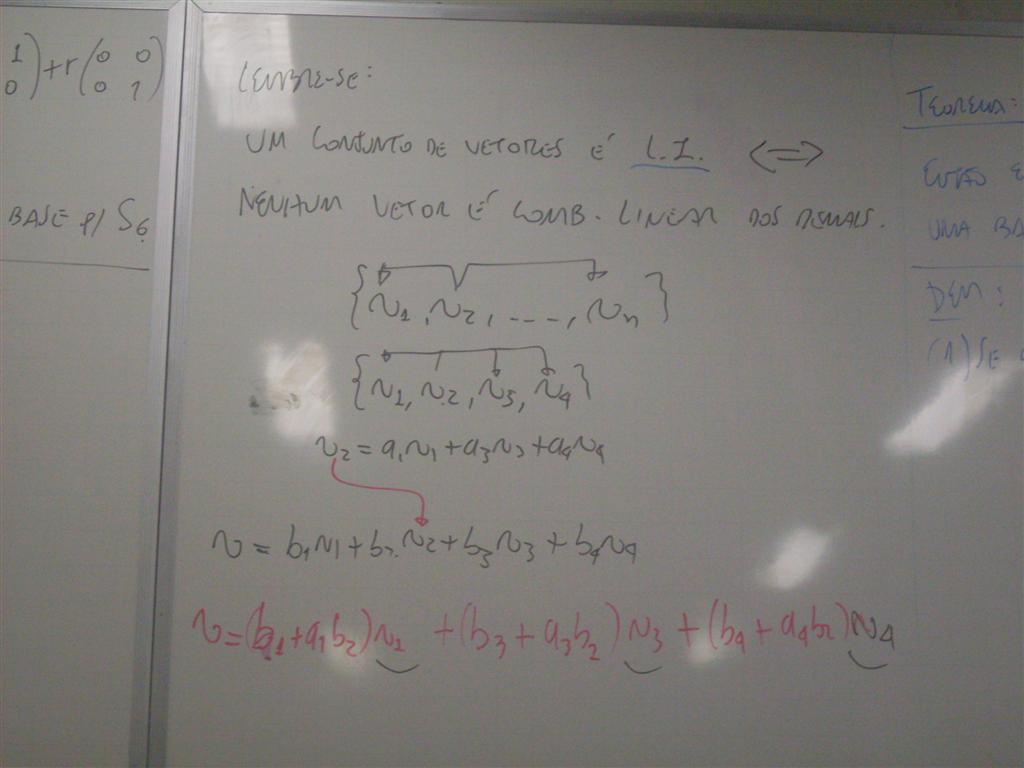 1
0) + r(0 0
0 1)
BASE P/ S6
LEMBRE-SE:
UM CONJUNTO DE VETORES É L.I. <=>
NENHUM VETOR É COMB. LINEAR DOS DEMAIS.
{v1, v2, ----, vn}
{v1, v2, v3, v4}
v2 = a1v1 + a3v3 + a4v4
v = b1v1 + b2.v2 + b3v3 + b4v4
v = (b1 + a1b2)v1 + (b3 + a3b2)v3 + (b4 + a4b2)v4
TEOREMA:
ENTÃO E
UMA BA
DEM:
(1) SE